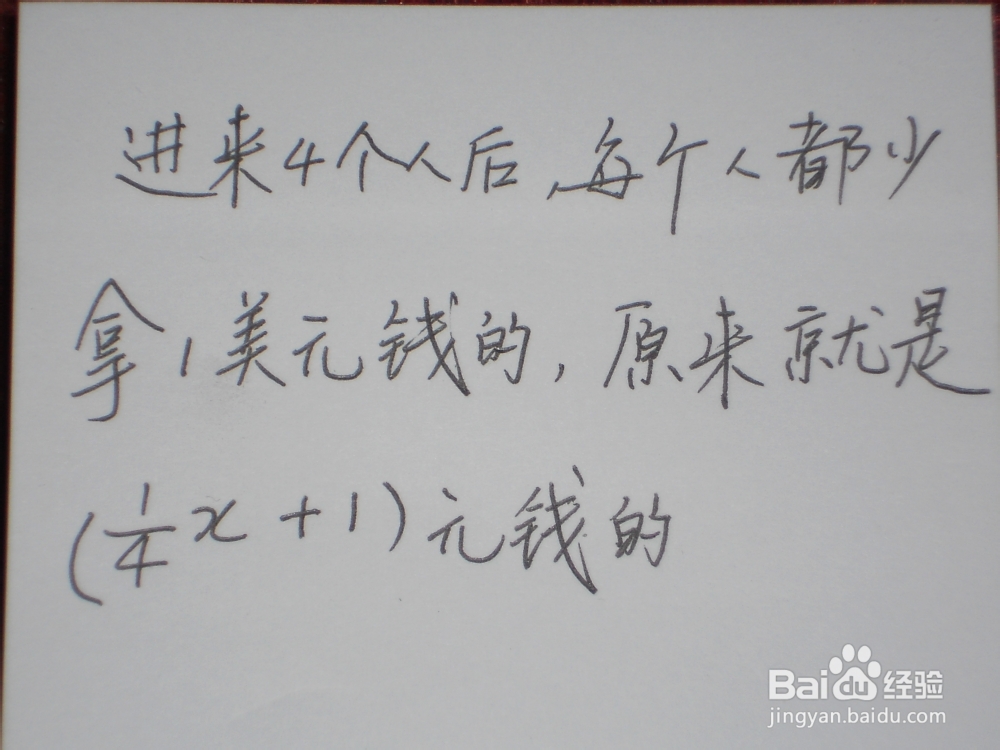 进来4个人后,每个人都少
拿1美元钱的,原来就是
(1/4x+1)元钱的
Baidu经验
jingyan.baidu.com